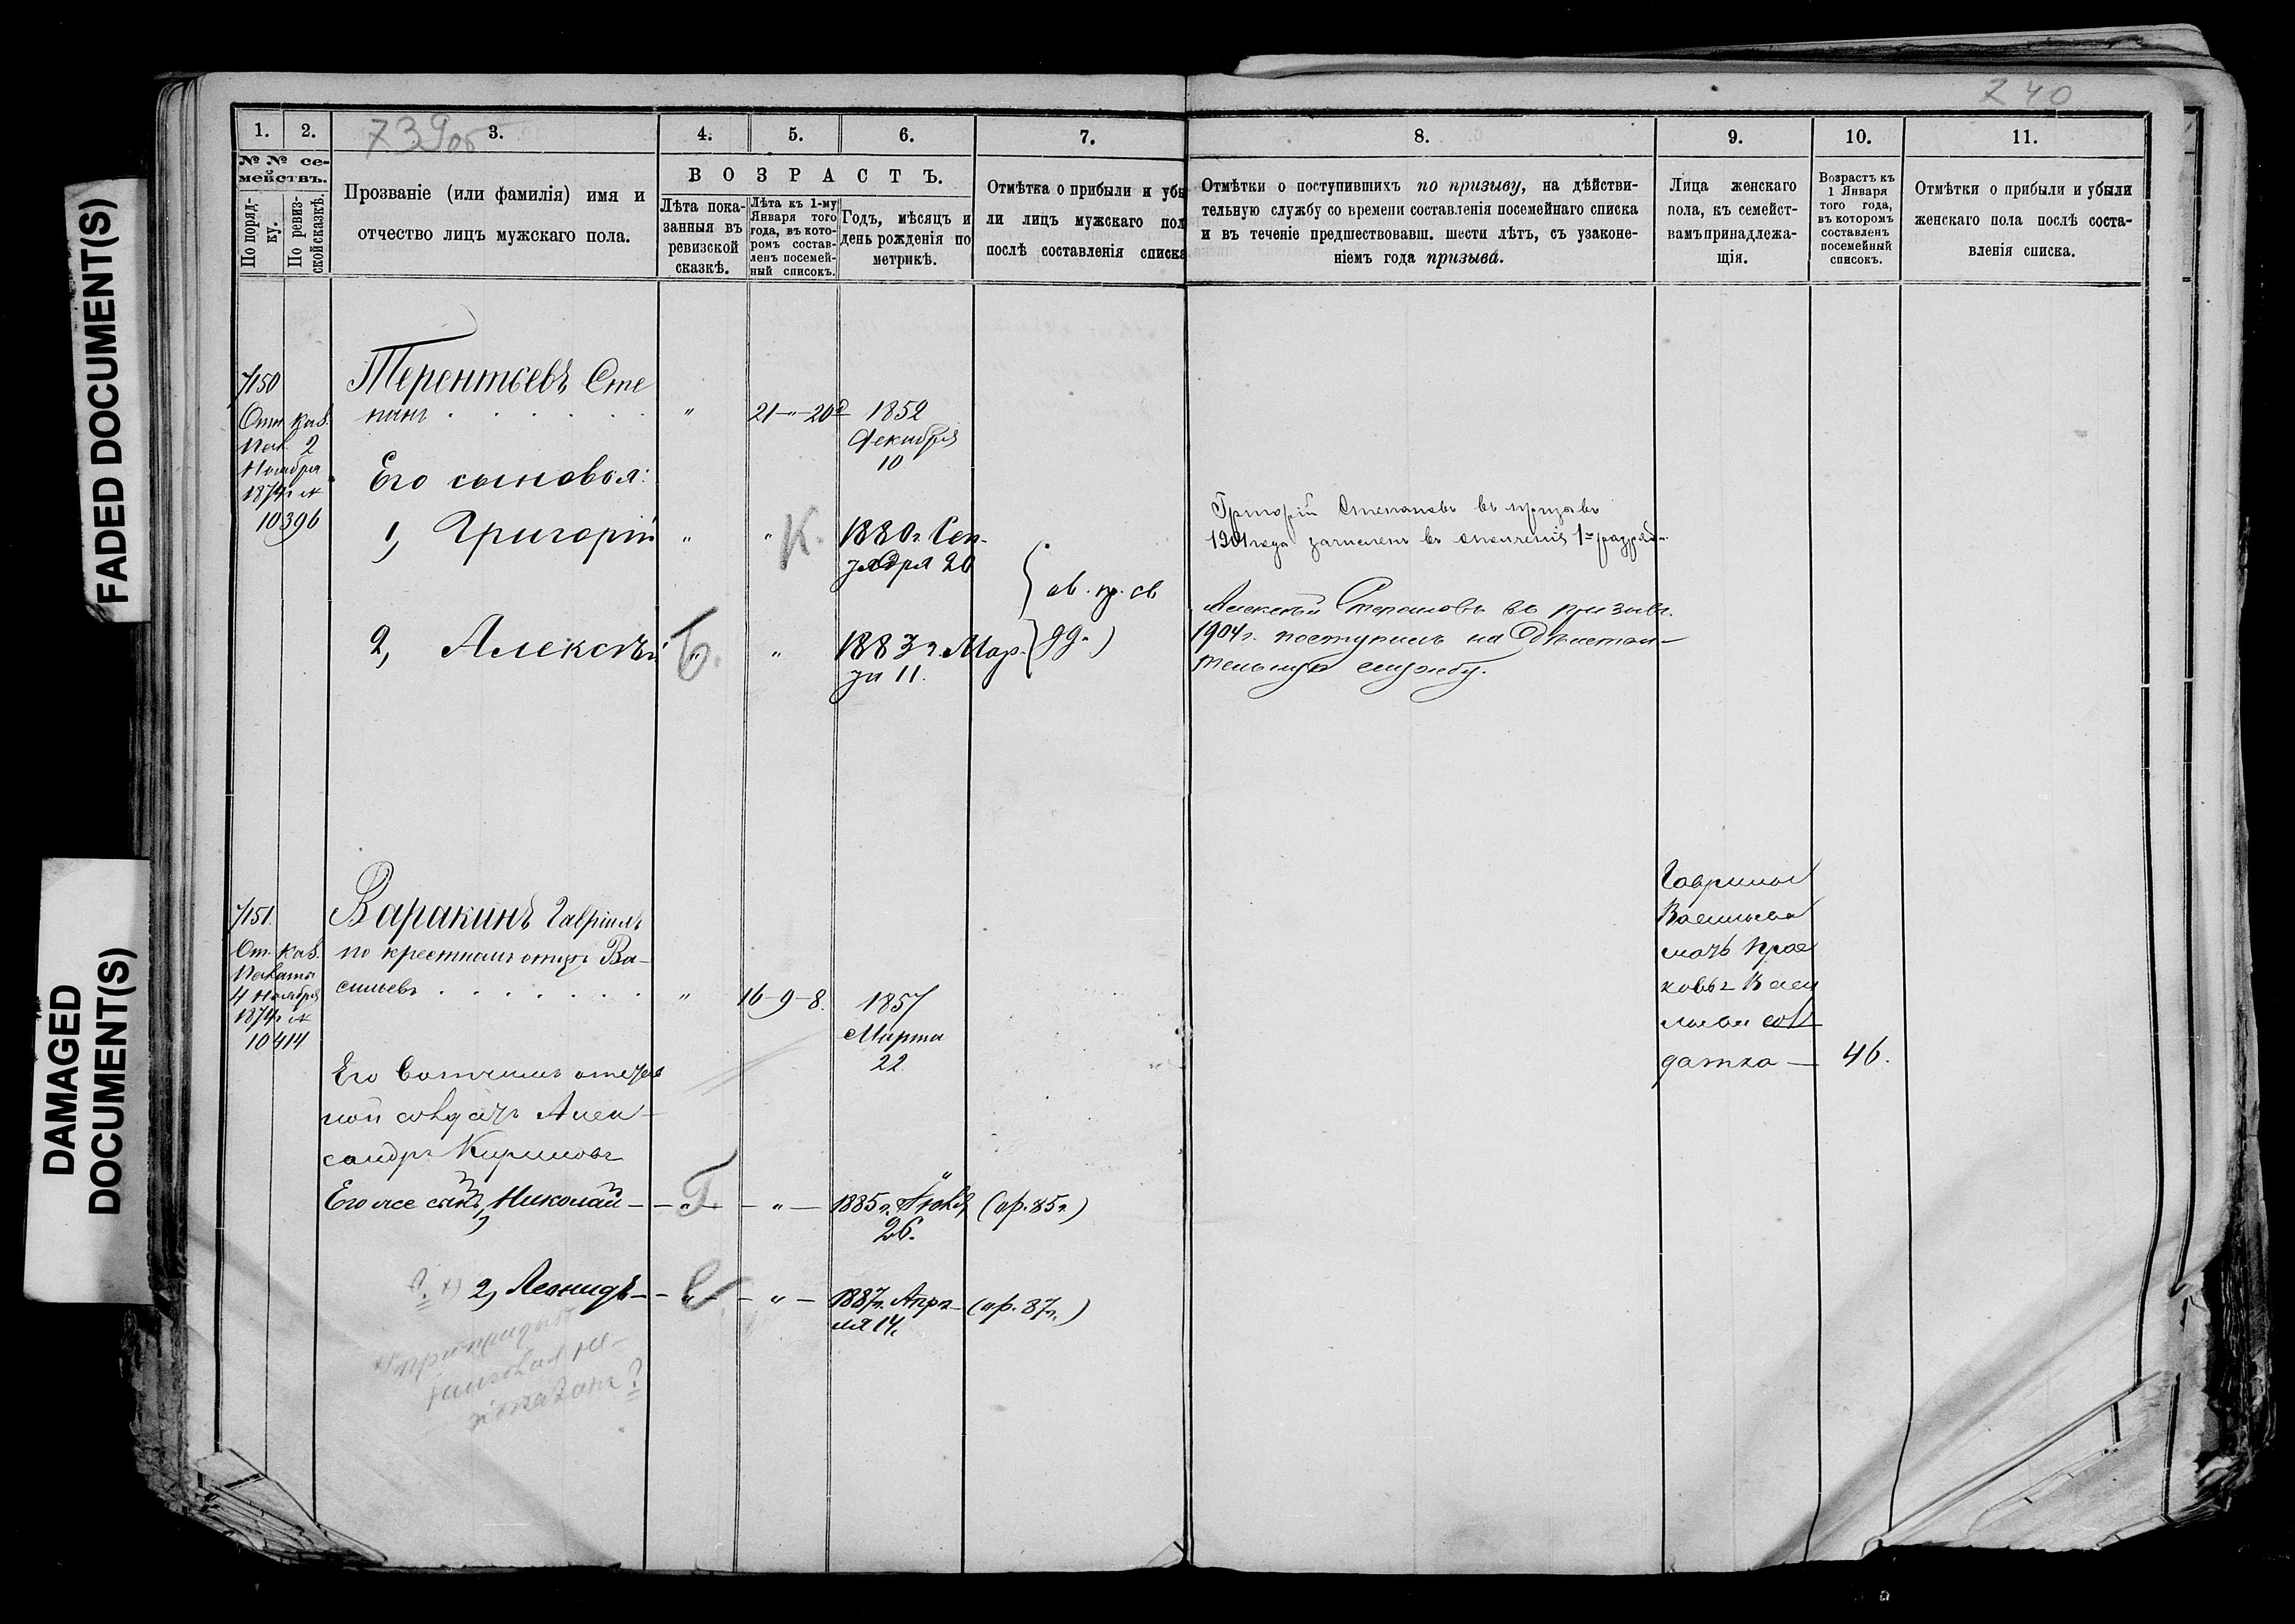 FADED DOCUMENT(S)
DAMAGED
DOCUMENT(S)
739об
240
1.
2.
3.
4.
5.
6.
7.
8.
9.
10.
11.
№ № се-
мействъ.
По поряд-
ку.
По ревиз-
ской сказкѣ.
Прозваніе (или фамилія) имя и
отчество лицъ мужскаго пола.
ВОЗРАСТЪ.
Лѣта пока-
занныя въ
ревизской
сказкѣ.
Лѣта къ 1-му
Января того
года, въ кото-
ромъ состав-
ленъ посемей-
ный списокъ.
Годъ, мѣсяцъ и
день рожденія по
метрикѣ.
Отмѣтка о прибыли и убы
ли лицъ мужскаго пол
послѣ составленія списка
Отмѣтки о поступившихъ по призыву, на дѣйстви-
тельную службу со времени составленія посемейнаго списка
и въ теченіе предшествовавш. шести лѣтъ, съ узаконе-
ніемъ года призыва.
Лица женскаго
пола, къ семейст-
вамъ принадлежа-
щія.
Возрастъ къ
1 Января
того года,
въ которомъ
составленъ
посемейный
списокъ.
Отмѣтки о прибыли и убыли
женскаго пола послѣ соста-
вленія списка.
7150
От. каз.
Пал. 2
Ноября
1874г №
10396
Терентьевъ Сте
панъ . . . . . .
"
21-"-20д
1852
Декабря
10
Его сыновья:
1, Григорій
"
"
К.
1880г. Сен-
тября 20
Григорій Степановъ въ призывъ
1901 года зачисленъ въ ополченіе 1го разряда
2, Алексѣй
Б.
"
1883г. Мар-
та 11.
Алексѣй Степановъ въ призывъ
1904г. поступилъ на дѣйстви-
тельную службу.
7151.
От. каз.
Палаты
4 Ноября
1874г №
10414
Варакинъ Гавріилъ
по крестному отцу Ва-
сильевъ . . . . . . .
"
16-9-8.
1857
Марта
22
Гавріила
Васильева
мать Прас
ковья Васи
льева сол
датка — 46.
Его вотчимъ отстав
ной солдатъ Алек-
сандръ Кириловъ
Его же сынъ Николай — Г. — " — 1885г. Іюля (ар. 85г.)
26.
? х) 2, Леонидъ — " — " — 1887г. Апрѣ- (ар. 87г.)
ля 14.
показанъ?